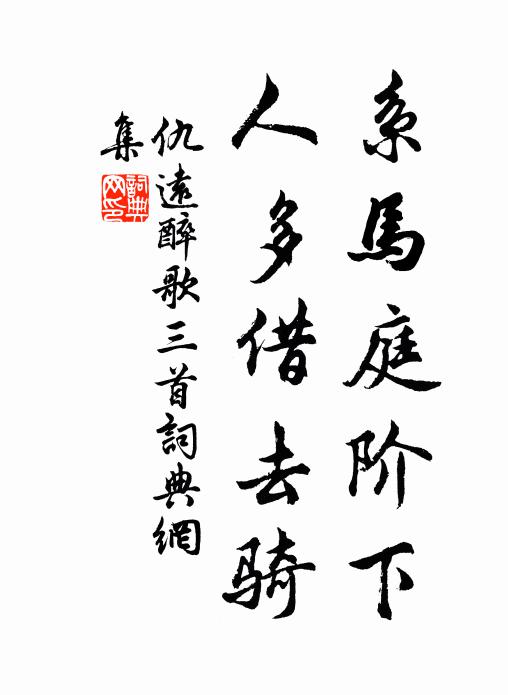 系馬庭阶下
人多借去骑
仇遠醉歌三首詞典網
集
詞典
网印